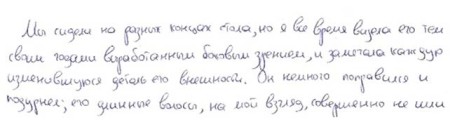 Мы сидели на разных концах стола, но я все время видела его тем
своим годами выработанным боковым зрением, и замечала каждую
изменившуюся деталь его внешности. Он немного поправился и
подурнел; его длинные волосы, на мой взгляд, совершенно не шли